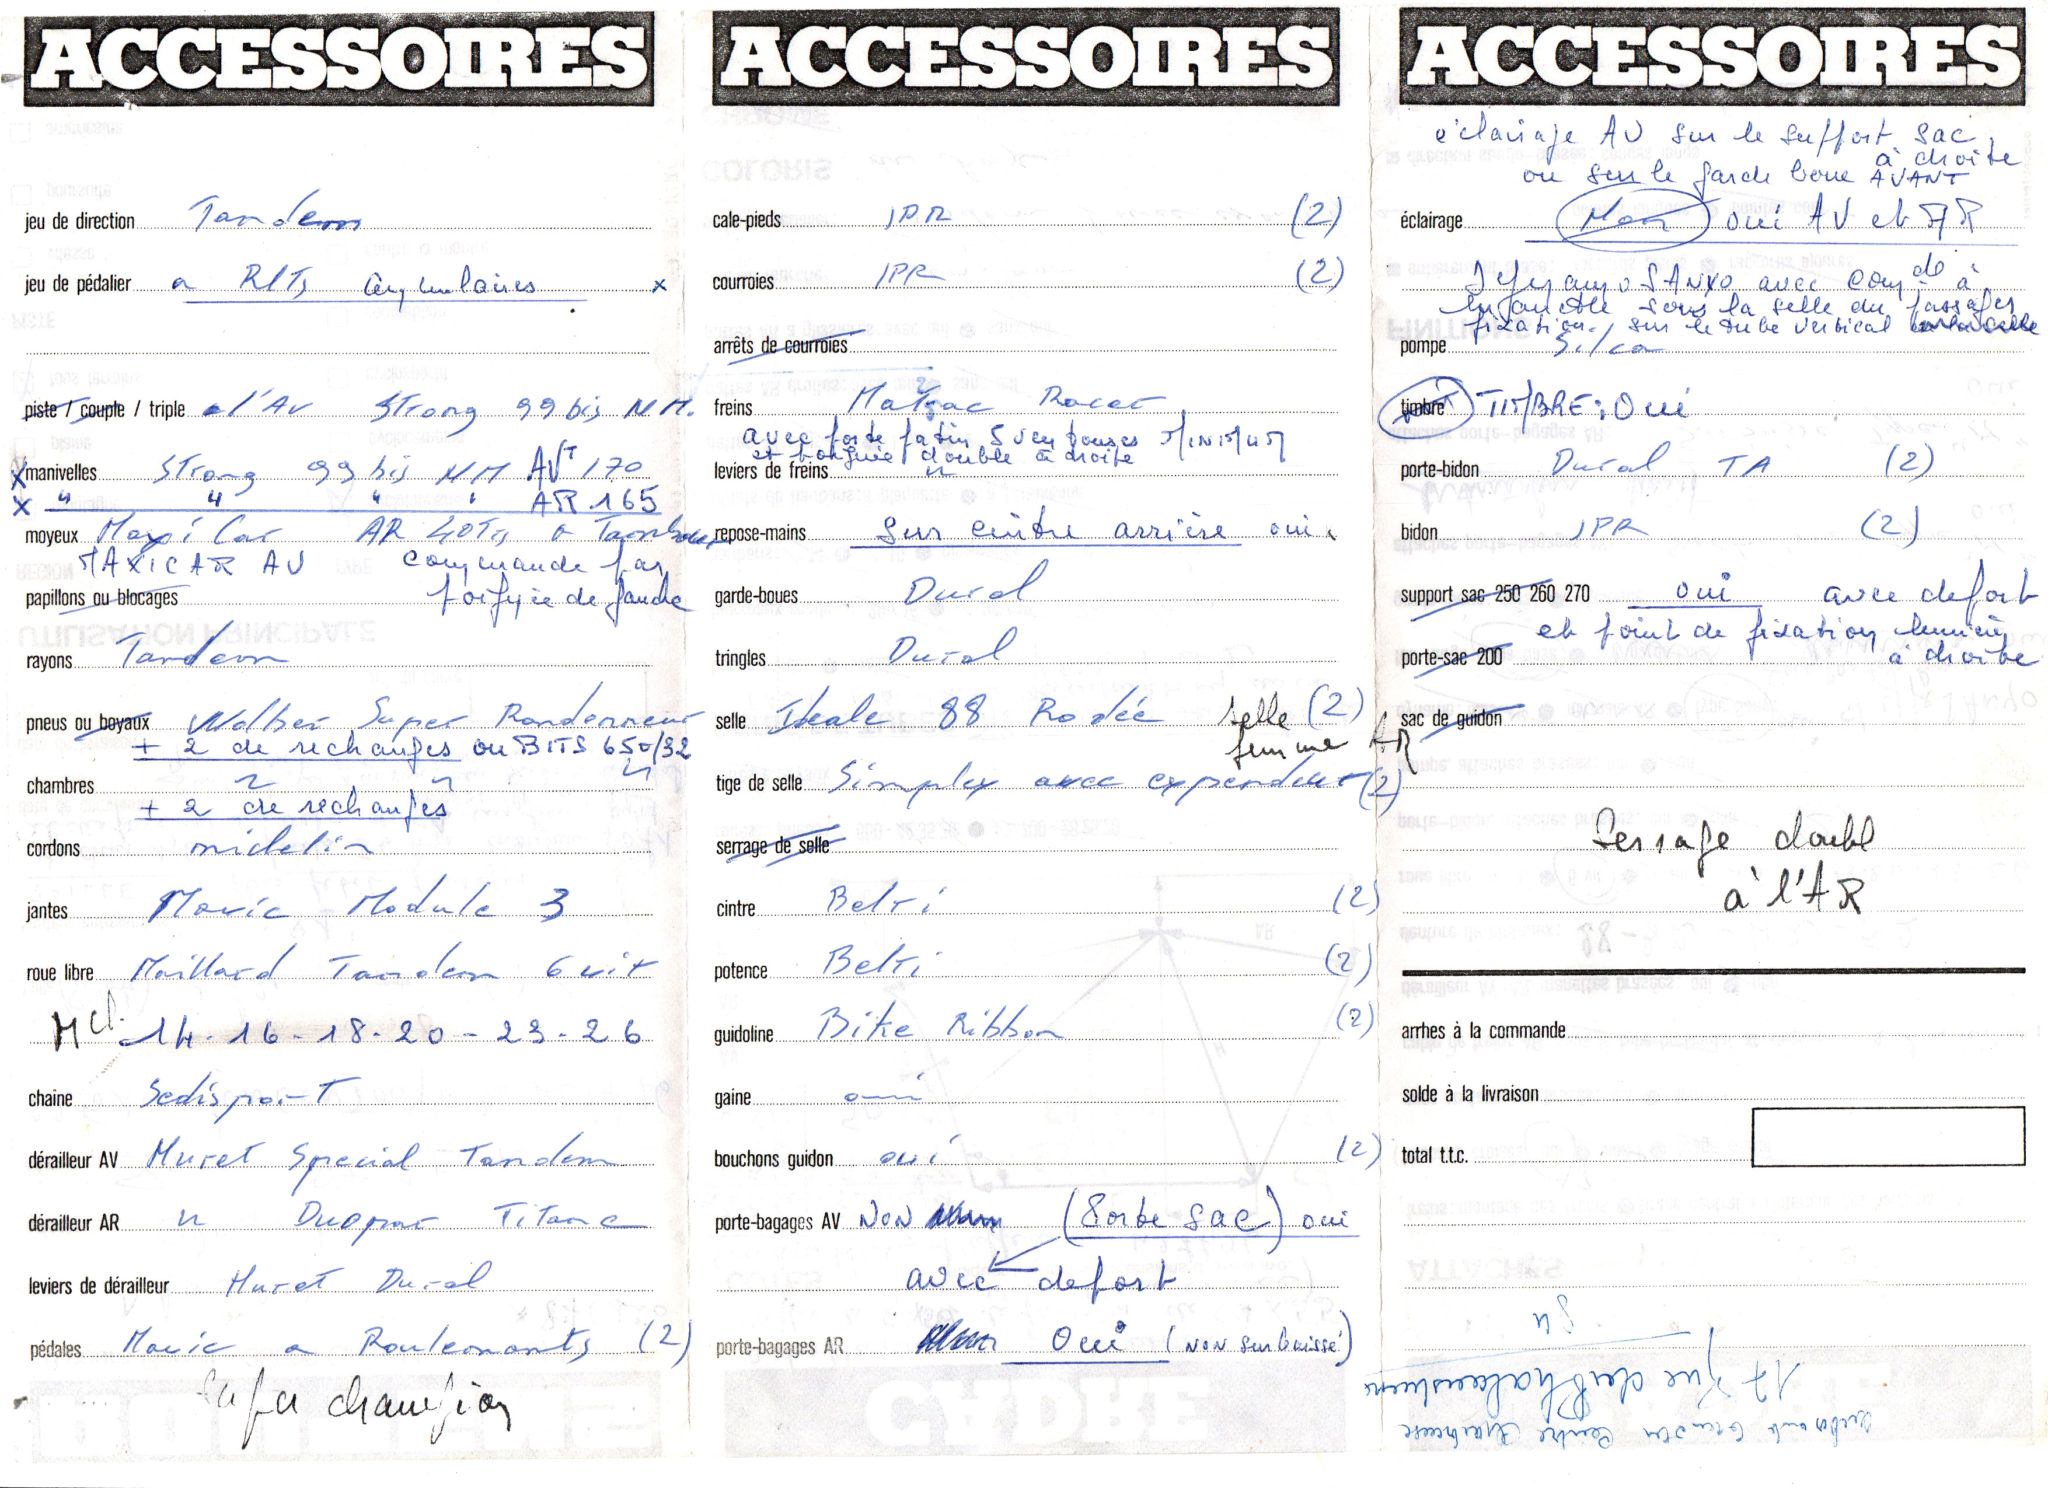 ACCESSOIRES
jeu de direction Tandem
jeu de pédalier a Rlts
piste / couple / triple l'Av Strong 99 bis N.M.
manivelles Strong 99 bis NM AVt 170
" " " " AR 165
moyeux Maxi Car AR 40Ts a Tambour
MAXICAR AV commande par
papillons ou blocages poignée de gauche
rayons Tandem
pneus ou boyaux Wolber Super Randonneur
+ 2 de rechanges ou BITS 650/32
chambres " " "
+ 2 de rechanges
cordons michelin
jantes Mavic Module 3
roue libre Maillard Tandem 6 vit
14 - 16 - 18 - 20 - 23 - 26
chaine Sedisport
dérailleur AV Huret Special Tandem
dérailleur AR " Duopar Titane
leviers de dérailleur Huret Dural
pédales Mavic a Roulements (2)
champion
ACCESSOIRES
cale-pieds JPR (2)
courroies JPR (2)
arrêts de courroies
freins Racer
avec porte patin
et poignée double à droite
leviers de freins "
repose-mains sur cintre arrière oui
garde-boues Dural
tringles Dural
selle Ideale 88 Rodée selle (2)
femme AR
tige de selle Simplex avec expendeur (2)
serrage de selle
cintre Belri (2)
potence Belri (2)
guidoline Bike Ribbon (2)
gaine oui
bouchons guidon oui (2)
porte-bagages AV NON (Porte sac) oui
avec deport
porte-bagages AR Oui (NON surbaissé)
ACCESSOIRES
éclairage AV sur le support sac
à droite
ou sur le garde boue AVANT
éclairage Non oui AV et AR
SANYO avec
sous la selle du passager
fixation sur le tube vertical
pompe Silca
timbre TIMBRE: Oui
porte-bidon Dural TA (2)
bidon JPR (2)
support sac 250 260 270 oui avec deport
et point de fixation lumière
porte-sac 200 à droite
sac de guidon
Serrage doubl
à l'AR
arrhes à la commande
solde à la livraison
total t.t.c.